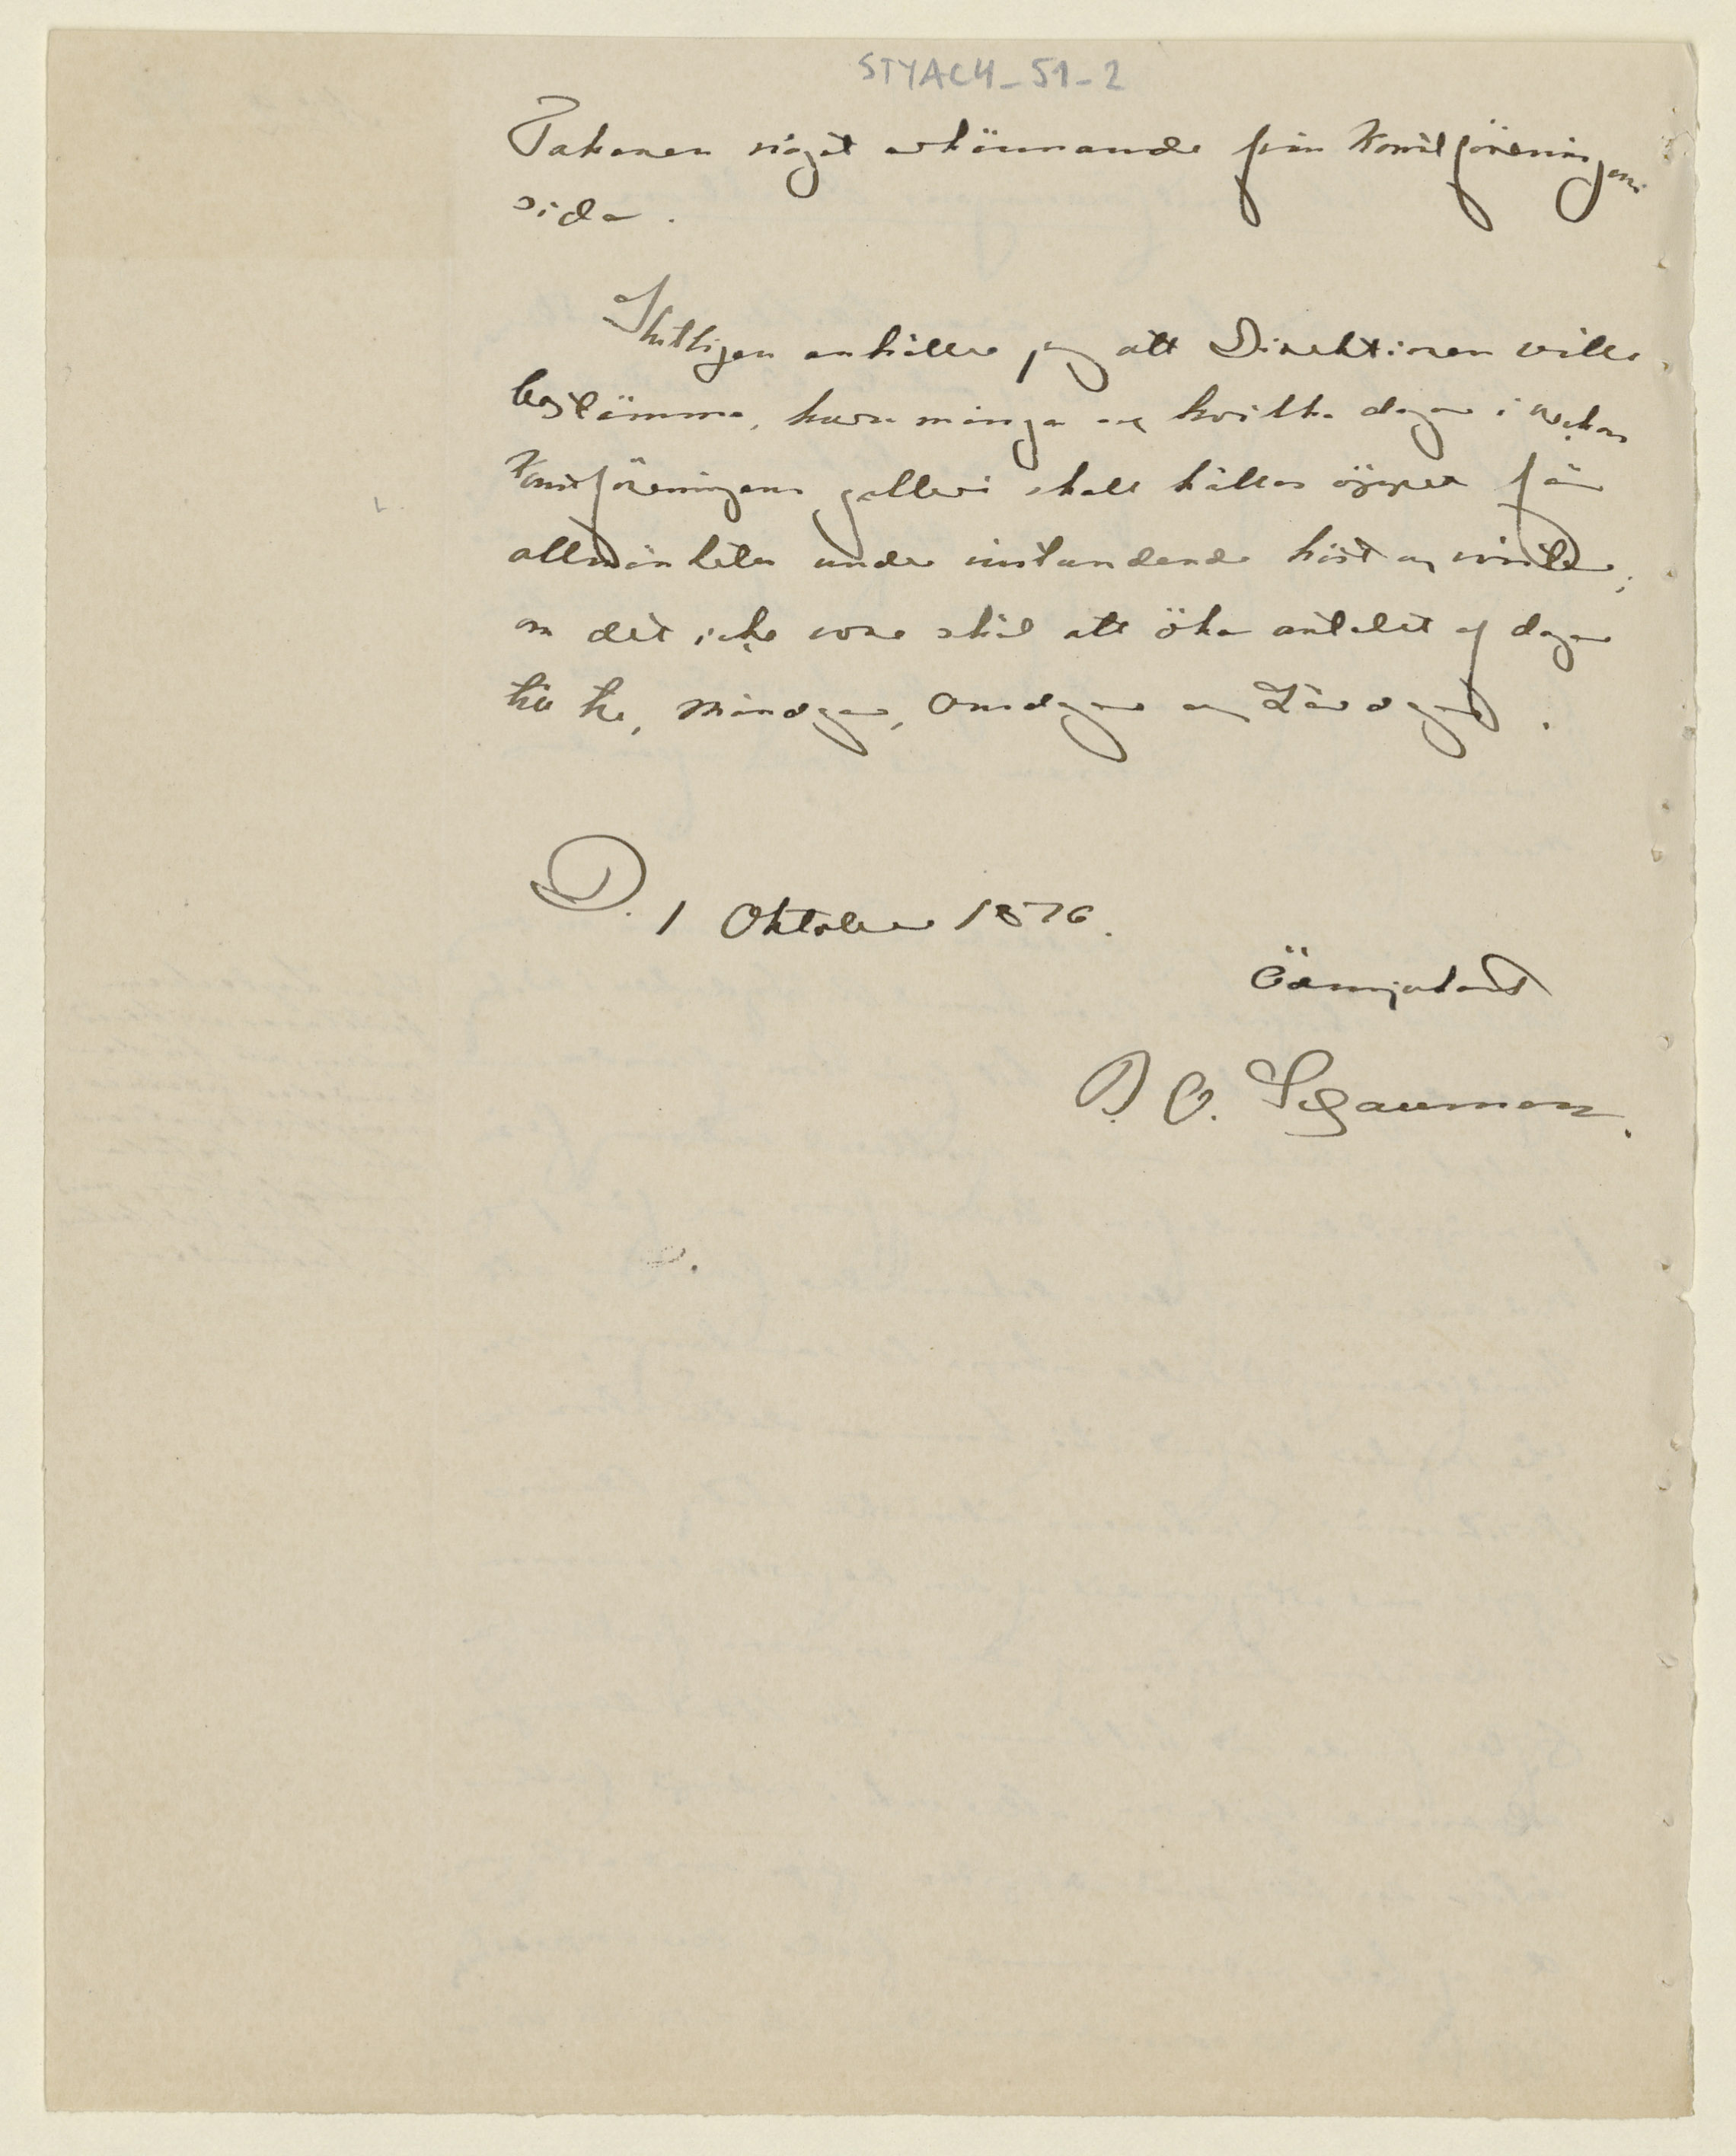 STYACH_51-2
Takanen något erkännande från Konstföreningens
sida.
Slutligen anhåller jag att Direktionen ville
bestämma, huru många och hvilka dagar i veckan
Konstföreningens galleri skall hållas öppet för
allmänheten under instundande höst och vinter;
om det icke vore skäl att öka antalet af dagar
till tre, Måndagar, Onsdagar och Lördagar.
D. 1 Oktober 1876.
Ödmjukast
B. O. Schauman.